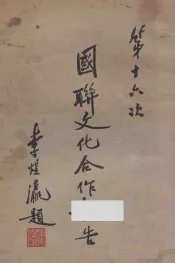 第十六次
國聯文化合作
告
李煜瀛題